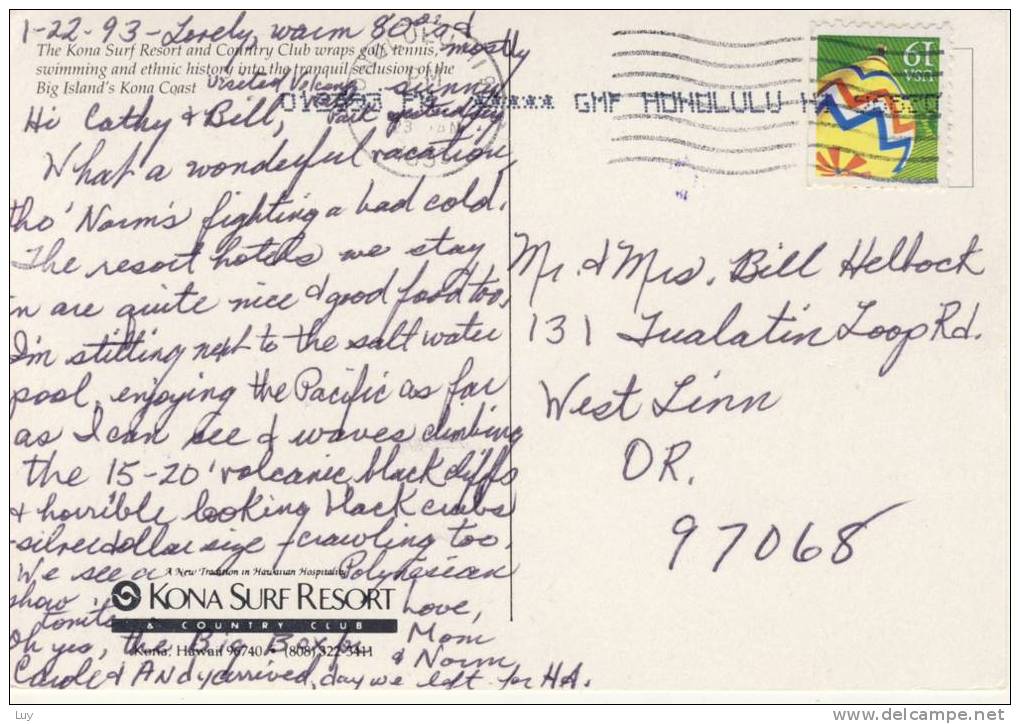 1-22-93-Lovely, warm 80° and mostly sunny
The Kona Surf Resort and Country Club wraps golf, tennis,
swimming and ethnic history into the tranquil seclusion of the
Big Island's Kona Coast
Visited Volcano
Park yesterday
Hi Cathy & Bill,
What a wonderful vacation,
tho' Norm's fighting a bad cold.
The resort hotels we stay
in are quite nice & good food too.
I'm stitting next to the salt water
pool, enjoying the Pacific as far
as I can see & waves climbing
the 15-20' volcanic black cliffs
& horrible looking black crabs
-silverdollar size - crawling too.
We see a Polynesian
show tonite
Love,
Mom
& Norm
Oh yes, the Big Box for
Carole & Andy arrived, day we left for HA.
A New Tradition in Hawaiian Hospitality
KONA SURF RESORT
& COUNTRY CLUB
Kona, Hawaii 96740 • (808) 322-3411
GMF HONOLULU
19
USA
Mr. & Mrs. Bill Helbock
131 Tualatin Loop Rd.
West Linn
OR.
97068
Luy
delcampe.net